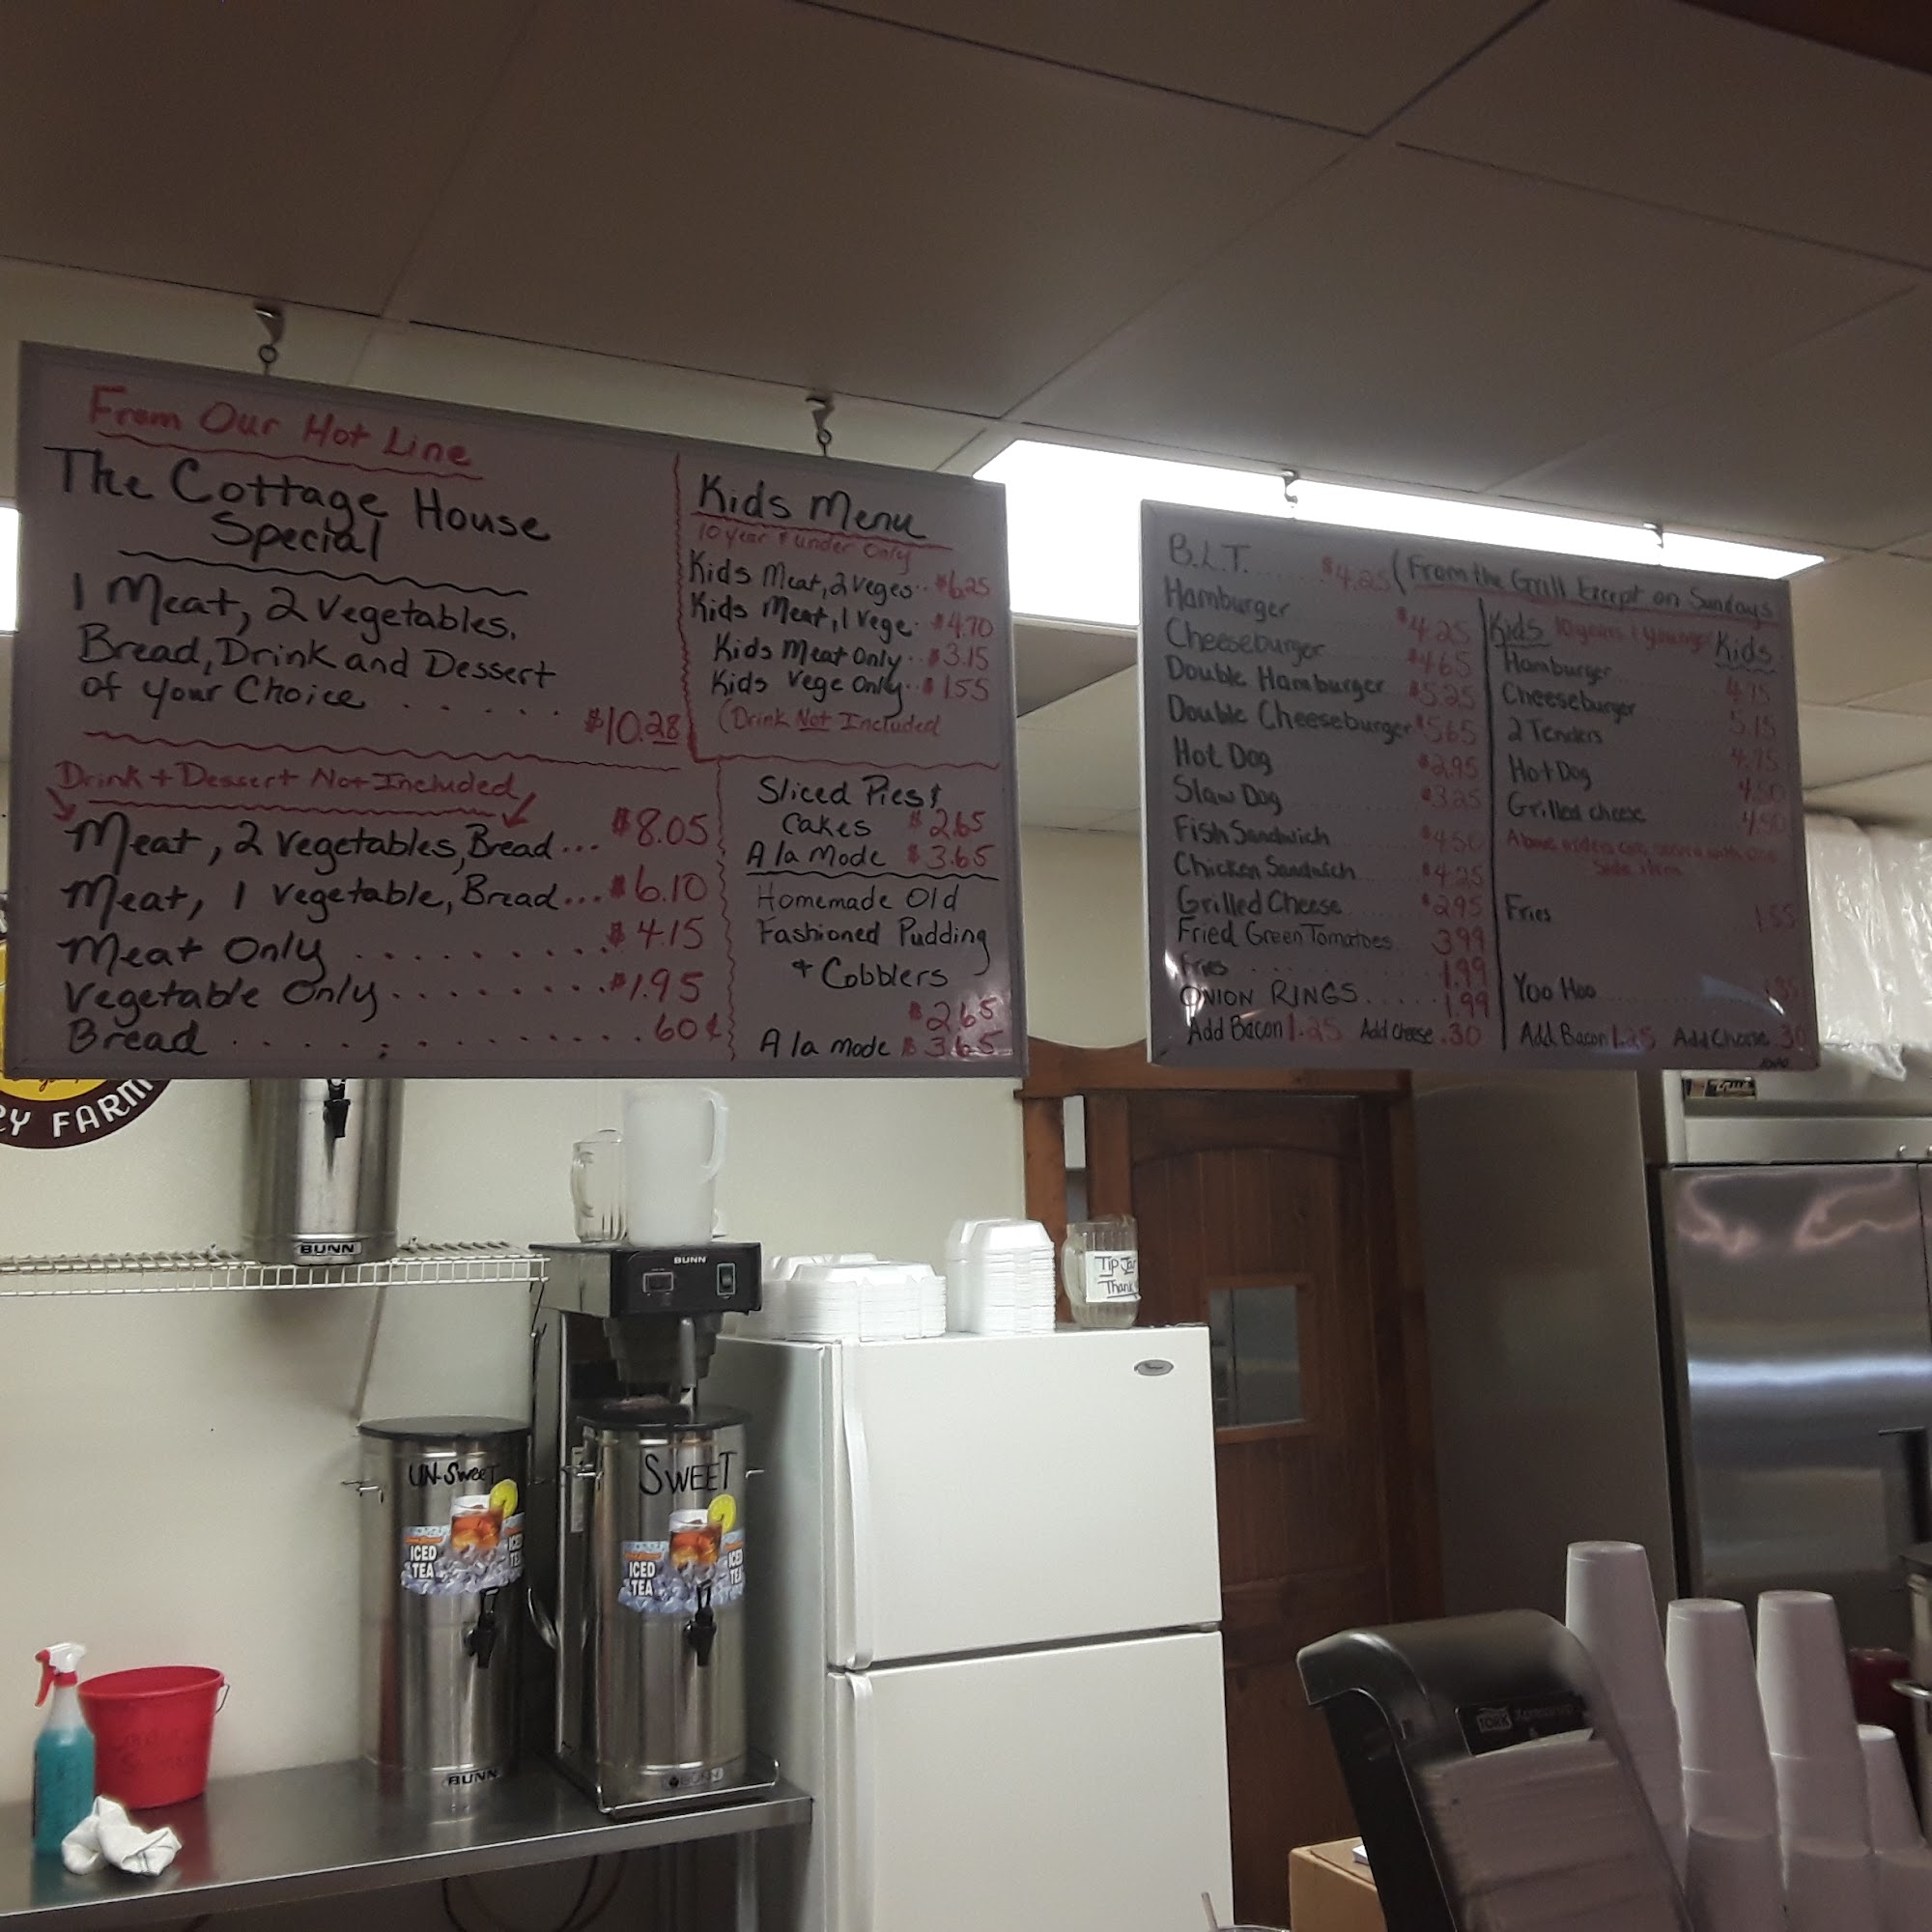 From Our Hot Line
The Cottage House
Special
1 Meat, 2 Vegetables,
Bread, Drink and Dessert
of your Choice . . . . . .
$10.28
Drink + Dessert Not Included
Meat, 2 vegetables, Bread... $8.05
Meat, 1 vegetable, Bread... $6.10
Meat Only . . . . . . . . . $4.15
Vegetable Only . . . . . . . . . $1.95
Bread . . . . . . . . . . . . . . 60¢
Kids Menu
10 year & under Only
Kids Meat, 2 Veges.. $6.25
Kids Meat, 1 Vege. $4.70
Kids Meat Only.. $3.15
Kids Vege Only.. $1.55
(Drink Not Included
Sliced Pies &
Cakes $2.65
A la Mode $3.65
Homemade Old
Fashioned Pudding
+ Cobblers
$2.65
A la mode $3.65
B.L.T. ....... $4.25
(From the Grill Except on Sundays
Hamburger $4.25
Cheeseburger $4.65
Double Hamburger $5.25
Double Cheeseburger $5.65
Hot Dog $2.95
Slaw Dog $3.25
Fish Sandwich $4.50
Chicken Sandwich $4.25
Grilled Cheese $2.95
Fried Green Tomatoes 3.99
Fries 1.99
ONION RINGS..... 1.99
Add Bacon 1.25 Add cheese .30
Kids 10 years & younger Kids
Hamburger 4.75
Cheeseburger 5.15
2 Tenders 4.75
Hot Dog 4.50
Grilled cheese 4.50
Above orders are served with one
Side item
Fries 1.55
Yoo Hoo
Add Bacon 1.25 Add Cheese .30
RY FARM
BUNN
BUNN
Tip Jar
Thank
UN-Sweet
ICED
TEA
ICED
TE
BUNN
SWEET
ICED
TEA
ICED
TEA
BUNN
TORK Xpressnap